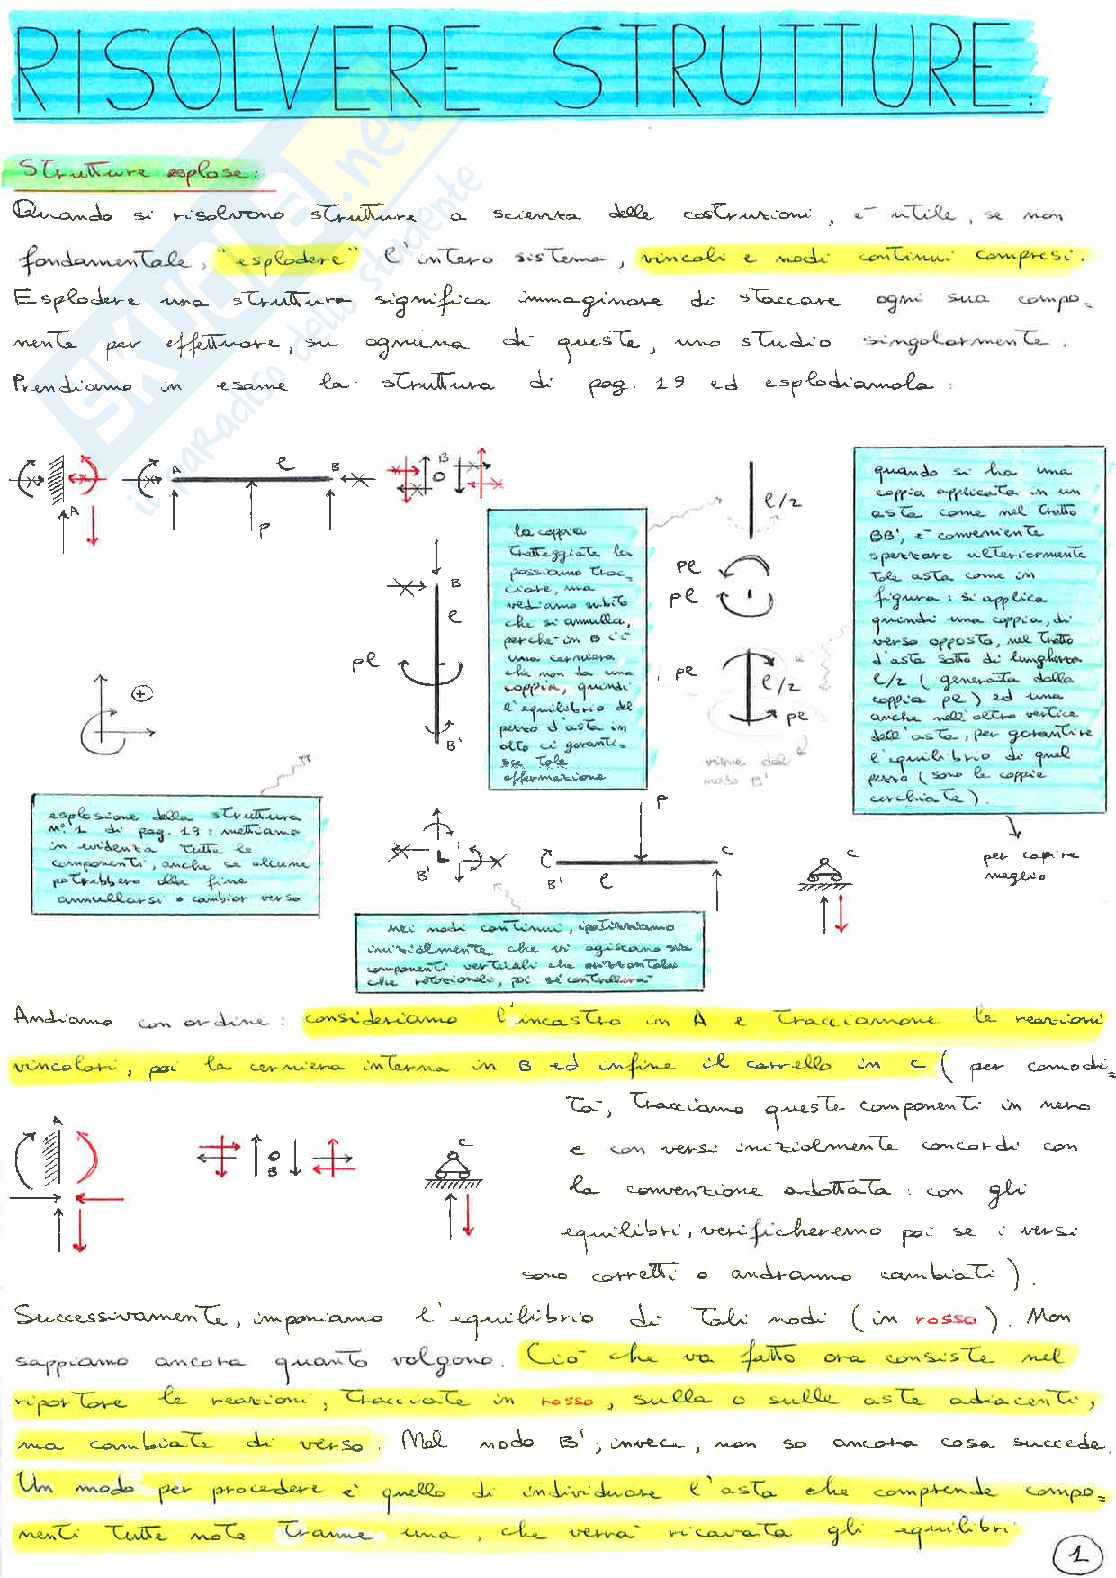 RISOLVERE STRUTTURE:
Strutture esplose:
Quando si risolvono strutture a scienza delle costruzioni, è utile, se non
fondamentale, "esplodere" l'intero sistema, vincoli e nodi continui compresi.
Esplodere una struttura significa immaginare di staccare ogni sua compo=
nente per effettuare, su ognuna di queste, uno studio singolarmente.
Prendiamo in esame la struttura di pag. 19 ed esplodiamola:
SKUOLA.net
il paradiso dello studente
A
A
l
B
P
B
l/2
pl
pl
pl
l/2
pl
viene dal
nodo B'
B
l
pl
B'
la coppia
tratteggiata la
possiamo trac=
ciare, ma
vediamo subito
che si annulla,
perché in B c'è
una cerniera
che non dà una
coppia, quindi
l'equilibrio del
pezzo d'asta in
alto ci garanti=
sce tale
affermazione
quando si ha una
coppia applicata in un
asta come nel tratto
BB', è conveniente
spezzare ulteriormente
tale asta come in
figura: si applica
quindi una coppia, di
verso opposto, nel tratto
d'asta sotto di lunghezza
l/2 (generata dalla
coppia pl) ed una
anche nell'altro vertice
dell'asta, per garantire
l'equilibrio di quel
pezzo (sono le coppie
cerchiate).
per capire
meglio
+
esplosione della struttura
n°1 di pag. 19: mettiamo
in evidenza tutte le
componenti, anche se alcune
potrebbero alla fine
annullarsi o cambiar verso
B'
P
B'
l
C
C
nei nodi continui, ipotizziamo
inizialmente che vi agiscano sia
componenti verticali che orizzontali
che rotazionali, poi si controllerà
Andiamo con ordine: consideriamo l'incastro in A e tracciamone le reazioni
vincolari, poi la cerniera interna in B ed infine il carrello in C (per comodi=
tà, tracciamo queste componenti in nero
e con versi inizialmente concordi con
la convenzione adottata: con gli
equilibri, verificheremo poi se i versi
sono corretti o andranno cambiati).
A
B
C
Successivamente, imponiamo l'equilibrio di tali nodi (in rosso). Non
sappiamo ancora quanto valgono. Ciò che va fatto ora consiste nel
riportare le reazioni, tracciate in rosso, sulla o sulle aste adiacenti,
ma cambiate di verso. Nel nodo B', invece, non so ancora cosa succede.
Un modo per procedere è quello di individuare l'asta che comprende compo=
nenti tutte note tranne una, che verrà ricavata gli equilibri
1